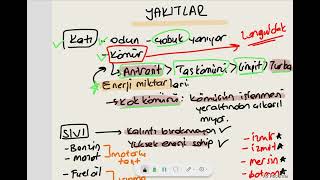 YAKITLAR
Katı
- Odun - çabuk yanıyor
- Kömür
Zonguldak
Antrasit > Taşkömürü > Linyit > Turba
Enerji miktarları
- Kok kömürü: kömürün işlenmesi
yeraltından çıkarıl
mıyor.
SIVI
- Kalıntı bırakmayan ✓
Yüksek enerji sahip ✓
- Benzin
- mazot
- Fuel oil
- izmir ★
- izmit ★
- mersin ★
- batman ★